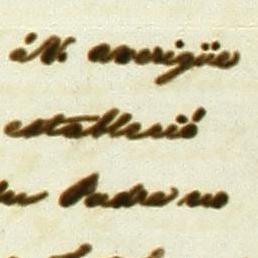 á N. averigüe
estableció
su Padre no